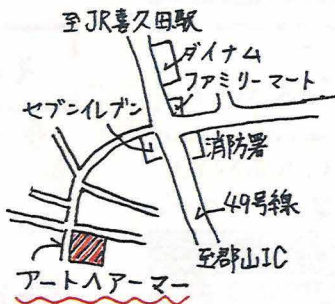 至JR喜久田駅
ダイナム
ファミリーマート
セブンイレブン
消防署
49号線
至郡山IC
アートヘアーマー